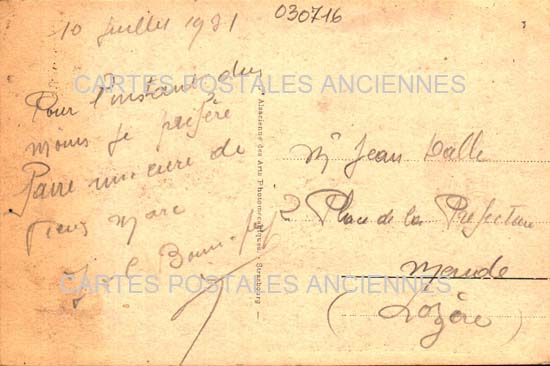 10 Juillet 1931
030716
CARTES POSTALES ANCIENNES
Pour l'instant, du
moins je préfère
de
Marc
Alsacienne des Arts Photomécaniques - Strasbourg
Mr Jean Dalle
Place de la Préfecture
Mende
(Lozère)
CARTES POSTALES ANCIENNES